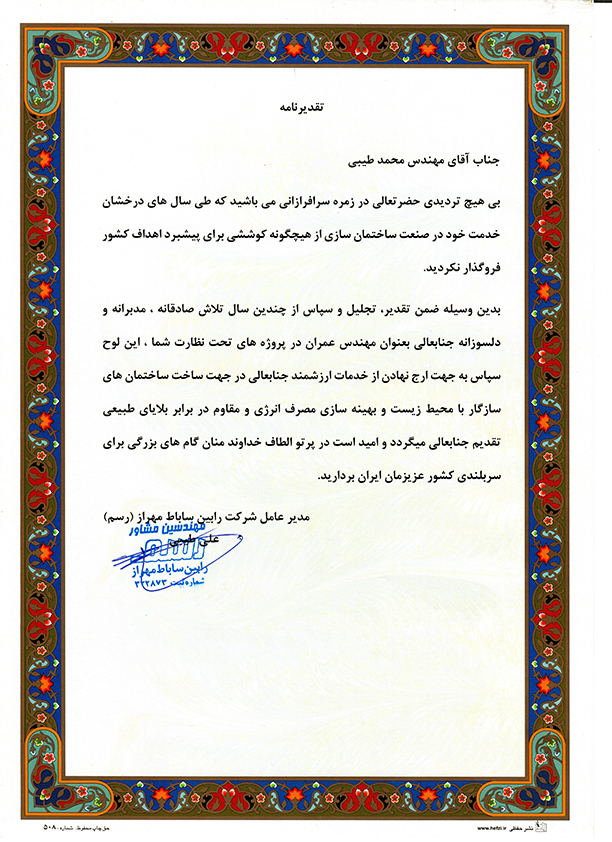 تقدیرنامه
جناب آقای مهندس محمد طیبی
بی هیچ تردیدی حضرتعالی در زمره سرافرازانی می باشید که طی سال های درخشان
خدمت خود در صنعت ساختمان سازی از هیچگونه کوششی برای پیشبرد اهداف کشور
فروگذار نکردید.
بدین وسیله ضمن تقدیر، تجلیل و سپاس از چندین سال تلاش صادقانه ، مدبرانه و
دلسوزانه جنابعالی بعنوان مهندس عمران در پروژه های تحت نظارت شما ، این لوح
سپاس به جهت ارج نهادن از خدمات ارزشمند جنابعالی در جهت ساخت ساختمان های
سازگار با محیط زیست و بهینه سازی مصرف انرژی و مقاوم در برابر بلایای طبیعی
تقدیم جنابعالی میگردد و امید است در پرتو الطاف خداوند منان گام های بزرگی برای
سربلندی کشور عزیزمان ایران بردارید.
مدیر عامل شرکت رابین ساباط مهراز (رسم)
مهندسین مشاور
علی
رسم
رابین ساباط مهراز
شماره ثبت ۳۲۲۸۷۳
نشر حفظی www.hefzi.ir
حق چاپ محفوظ. شماره: ۵۰۸